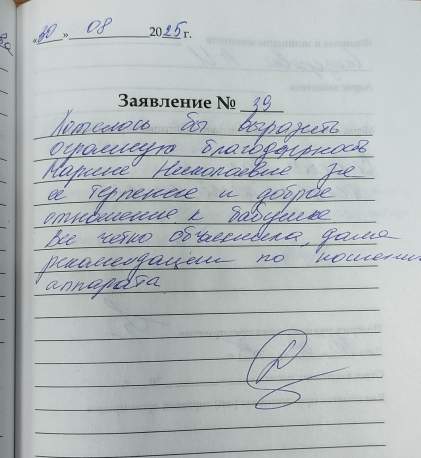 «30» 08 2025 г.
Заявление № 39
Хотелось бы выразить
огромную благодарность
Марине Николаевне за
её терпение и доброе
отношение к бабушке
Всё чётко объяснила, дала
рекомендации по ношению
аппарата